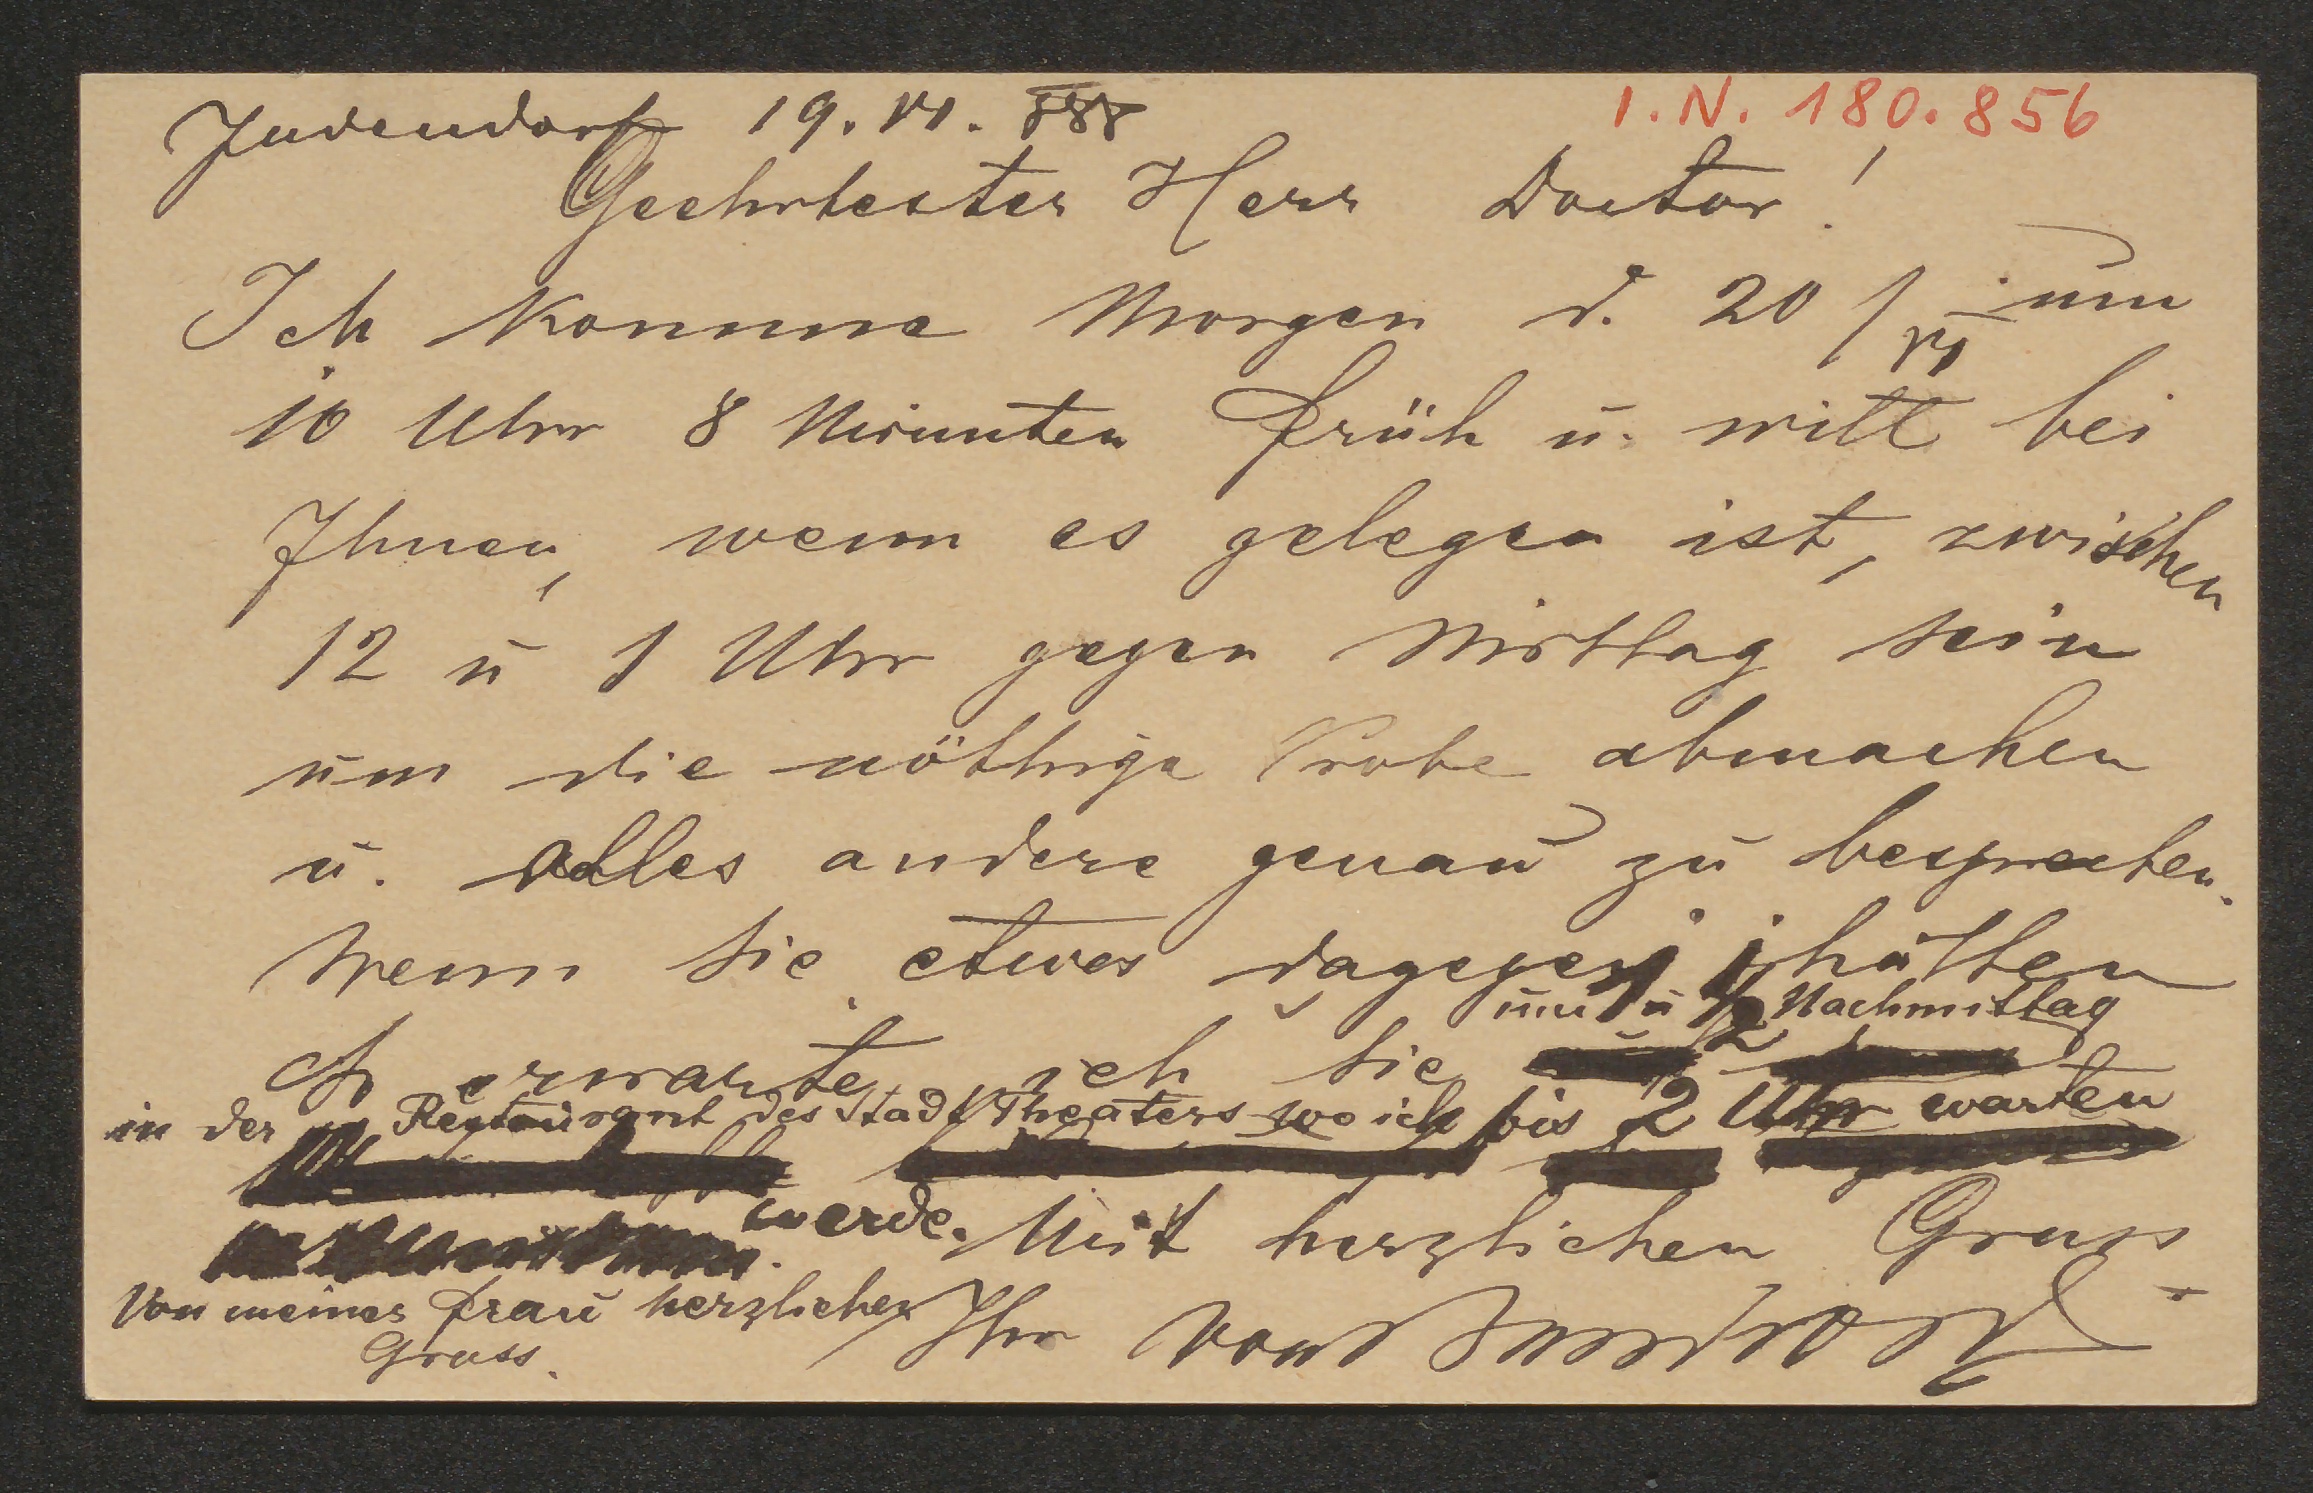 Judendorf 19. VI. 888
I.N. 180.856
Geehrtester Herr Doctor!
Ich komme Morgen d. 20/VI um
10 Uhr 8 Minunten früh u. will bei
Ihnen, wenn es gelegen ist, zwischen
12 u 1 Uhr gegen Mittag sein
um die nöthige Probe abmachen
u. alles andere genau zu besprechen.
Wenn Sie etwas dagegen hätten
um 1 u 1/2 Nachmittag
So erwarte ich Sie
in der Restaurant des Stadt Theaters wo ich bis 2 Uhr warten
werde. Mit herzlichen Gruss
Von meiner Frau herzlichen Ihr von
Gruss.